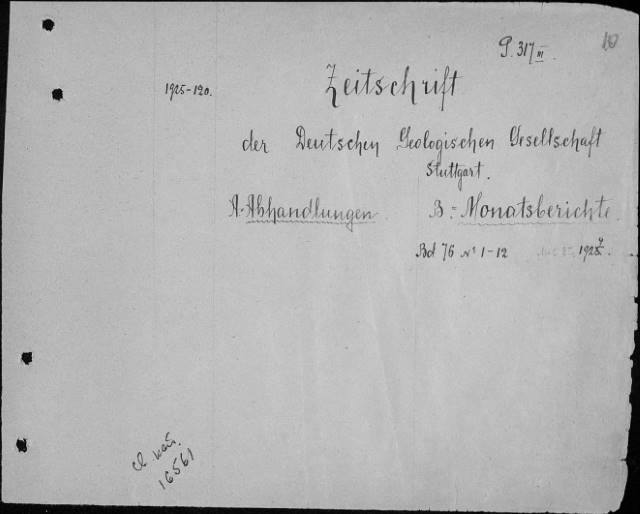 P. 317 III. 10
1925-120. Zeitschrift
der Deutschen Geologischen Gesellschaft
Stuttgart.
A-Abhandlungen. B:-Monatsberichte.
Bd 76 Nº 1-12 1925. 4
16561